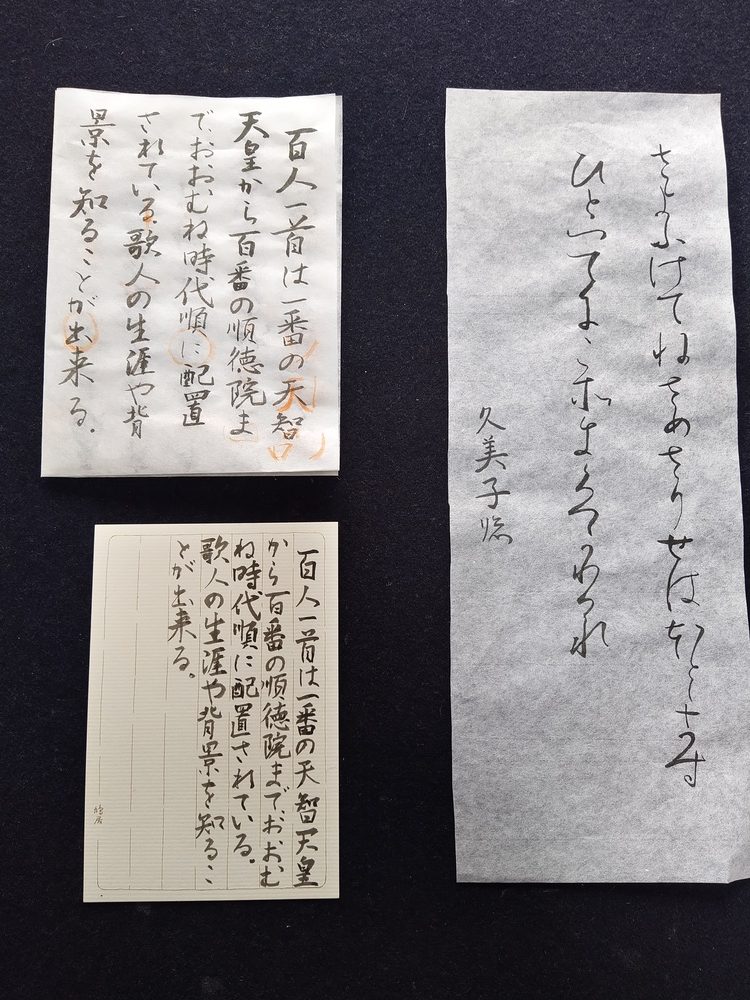 さよふけてねさめさりせはほとゝきす
ひとつてにこそきくへかりけれ
久美子臨
百人一首は一番の天智
天皇から百番の順徳院ま
でおおむね時代順に配置
されている。歌人の生涯や背
景を知ることが出来る。
百人一首は一番の天智天皇
から百番の順徳院までおおむ
ね時代順に配置されている。
歌人の生涯や背景を知るこ
とが出来る。